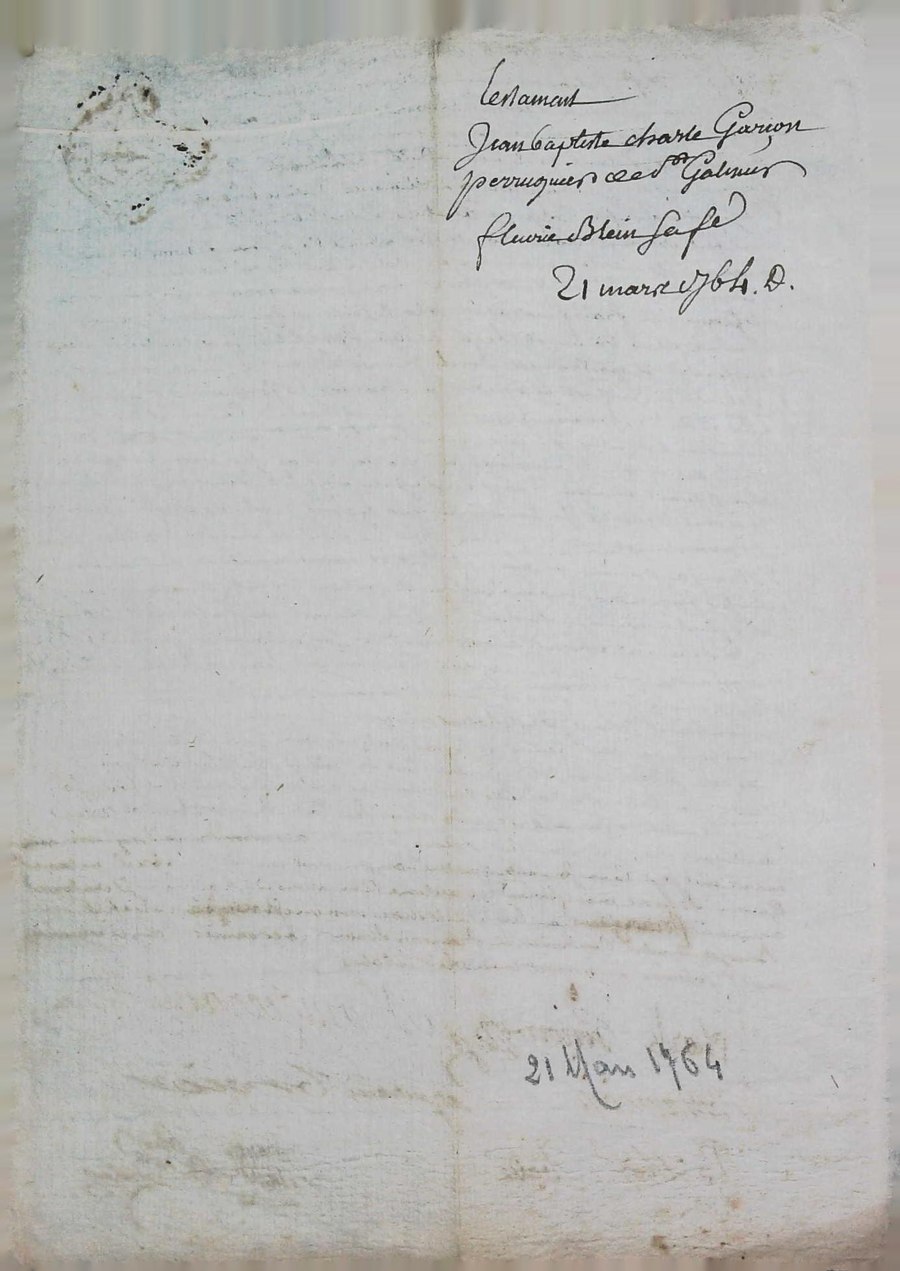 testament
Jean baptiste charle Garion
perruquier de St Galmier
fleurie Blein sa fe
21 mars 1764. D.
21 Mars 1764